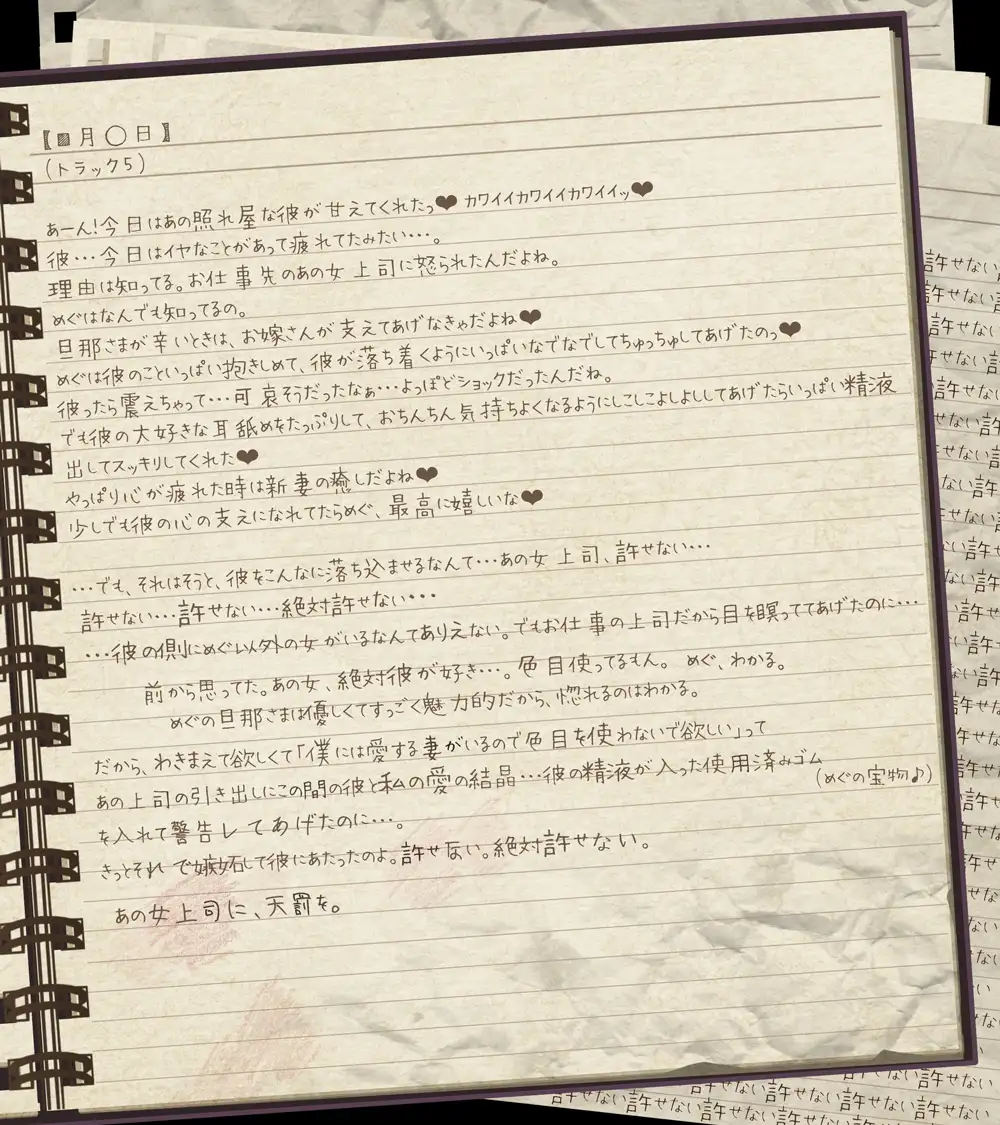 【■月○日】
(トラック5)
あーん!今日はあの照れ屋な彼が甘えてくれたっ❤ カワイイカワイイカワイイッ❤
彼…今日はイヤなことがあって疲れてたみたい…。
理由は知ってる。お仕事先のあの女上司に怒られたんだよね。
めぐはなんでも知ってるの。
旦那さまが辛いときは、お嫁さんが支えてあげなきゃだよね❤
めぐは彼のこといっぱい抱きしめて、彼が落ち着くようにいっぱいなでなでしてちゅっちゅしてあげたのっ❤
彼ったら震えちゃって…可哀そうだったなぁ…よっぽどショックだったんだね。
でも彼の大好きな耳舐めをたっぷりして、おちんちん気持ちよくなるようにしこしこよしよししてあげたらいっぱい精液
出してスッキリしてくれた❤
やっぱり心が疲れた時は新妻の癒しだよね❤
少しでも彼の心の支えになれてたらめぐ、最高に嬉しいな❤
…でも、それはそうと、彼をこんなに落ち込ませるなんて…あの女上司、許せない…
許せない…許せない…絶対許せない…
…彼の側にめぐ以外の女がいるなんてありえない。でもお仕事の上司だから目を瞑っててあげたのに…
前から思ってた。あの女、絶対彼が好き…。色目使ってるもん。めぐ、わかる。
めぐの旦那さまは優しくてすっごく魅力的だから、惚れるのはわかる。
だから、わきまえて欲しくて「僕には愛する妻がいるので色目を使わないで欲しい」って
あの上司の引き出しにこの間の彼と私の愛の結晶…彼の精液が入った使用済みゴム
(めぐの宝物♪)
を入れて警告してあげたのに…。
きっとそれで嫉妬して彼にあたったのよ。許せない。絶対許せない。
あの女上司に、天罰を。
許せない
許せない
許せない
許せない
許せない
許せない
許せない許せない許せない許せない
許せない許せない許せない許せない